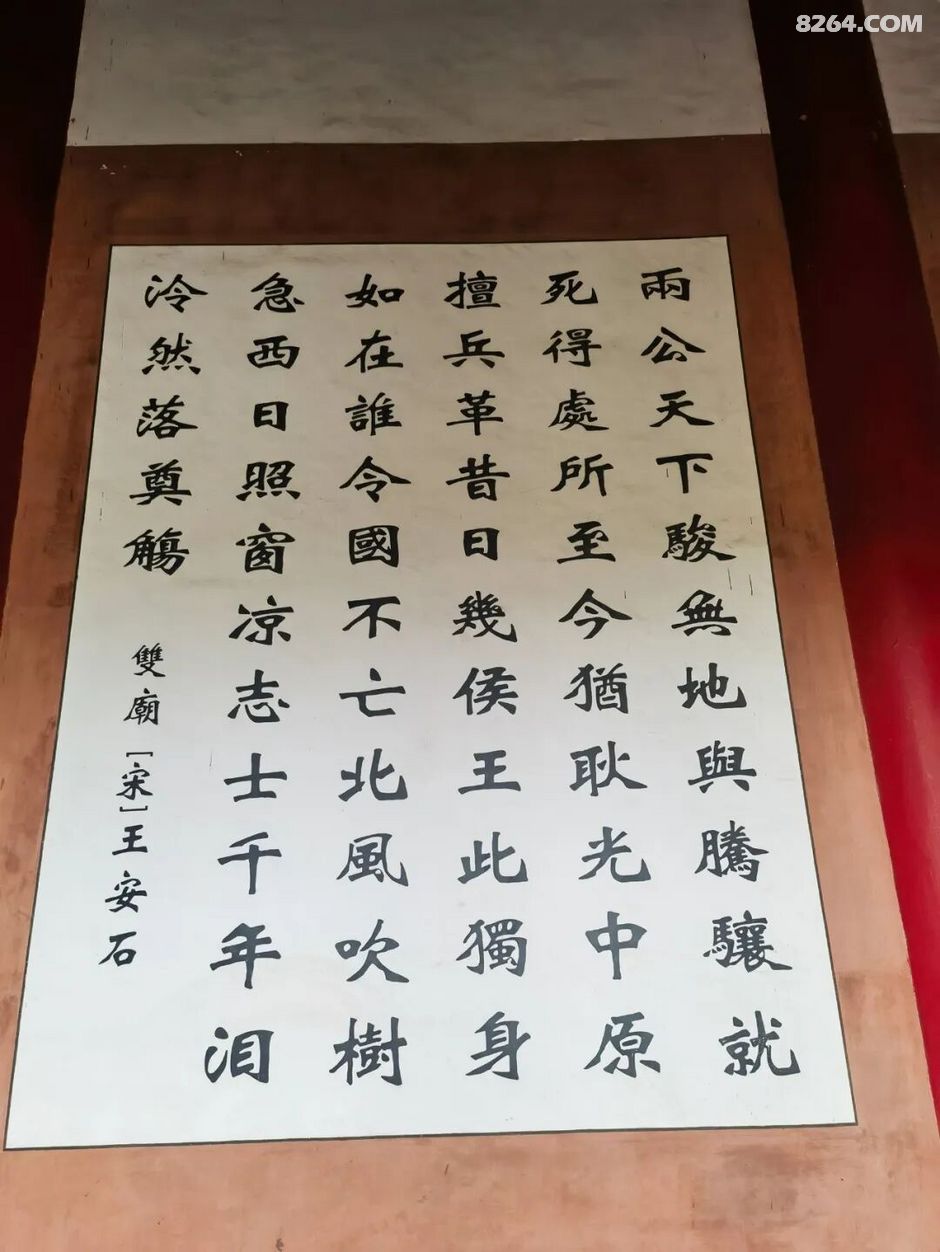 8264.COM
兩公天下駿無地與騰驤就
死得處所至今猶耿光中原
擅兵革昔日幾侯王此獨身
如在誰令國不亡北風吹樹
急西日照窗凉志士千年泪
泠然落奠觴
雙廟［宋］王安石